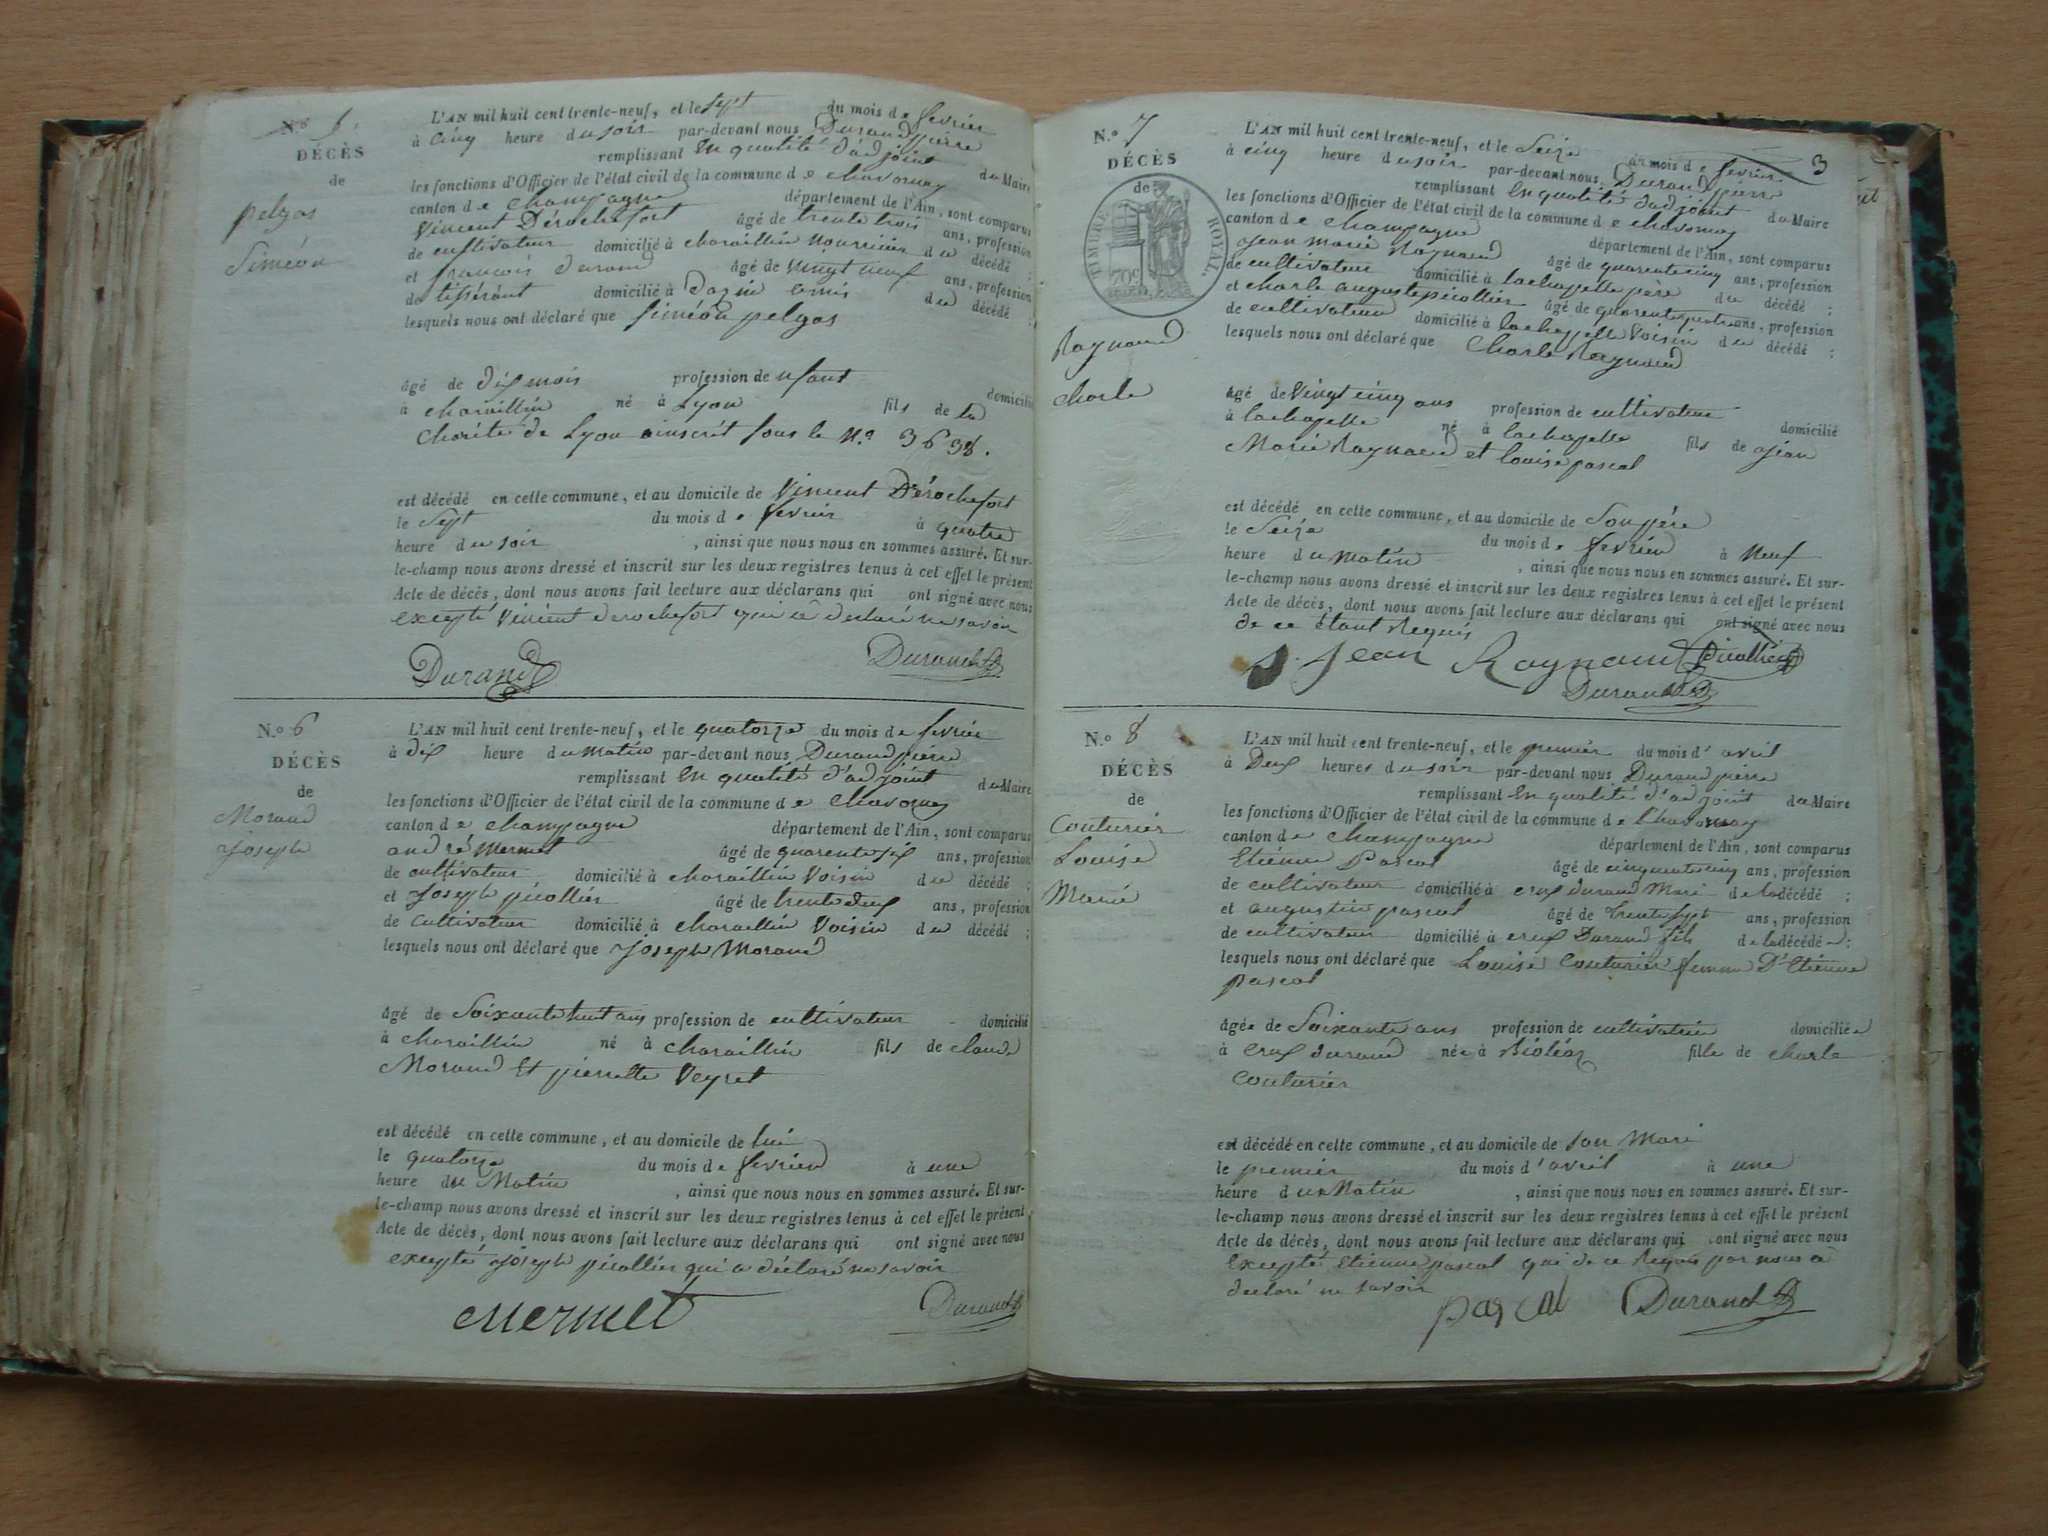 N.o 5.
DÉCÈS
de
pelgas
Siméon
L'AN mil huit cent trente-neuf, et le Sept du mois de fevrier
à Cinq heure du soir par-devant nous Durand pierre
remplissant En qualité d'adjoint du Maire
les fonctions d'Officier de l'état civil de la commune de chavornay
canton de Champagne département de l'Ain, sont comparus
Vincent Dérochefort âgé de trente trois ans, profession
de cultivateur domicilié à charaillin nourricier du décédé :
et francois durand âgé de vingt neuf ans, profession
de tisserant domicilié à dazin amis du décédé :
lesquels nous ont déclaré que Siméon pelgas
âgé de dix mois profession de enfant domicilié
à charaillin né à Lyon fils de la
Charité de Lyon inscrit sous le N.o 3638.
est décédé en cette commune, et au domicile de Vincent Dérochefort
le Sept du mois de fevrier à quatre
heure du soir , ainsi que nous nous en sommes assuré. Et sur-
le-champ nous avons dressé et inscrit sur les deux registres tenus à cet effet le présent
Acte de décès, dont nous avons fait lecture aux déclarans qui ont signé avec nous
excepté Vincent derochefort qui a déclaré ne savoir
Durand Durand
N.o 6
DÉCÈS
de
Morand
Joseph
L'AN mil huit cent trente-neuf, et le quatorze du mois de fevrier
à dix heure du matin par-devant nous Durand pierre
remplissant En qualité d'adjoint du Maire
les fonctions d'Officier de l'état civil de la commune de Chavornay
canton de Champagne département de l'Ain, sont comparus
andré Mermet âgé de quarente six ans, profession
de cultivateur domicilié à charaillin Voisin du décédé :
et Joseph picollier âgé de trente deux ans, profession
de Cultivateur domicilié à charaillin Voisin du décédé :
lesquels nous ont déclaré que Joseph Morand
âgé de Soixante huit ans profession de cultivateur domicilié
à charaillin né à Charaillin fils de claude
Morand Et pierrette Veyret
est décédé en cette commune, et au domicile de lui
le quatorze du mois de fevrier à une
heure du Matin , ainsi que nous nous en sommes assuré. Et sur-
le-champ nous avons dressé et inscrit sur les deux registres tenus à cet effet le présent
Acte de décès, dont nous avons fait lecture aux déclarans qui ont signé avec nous
excepté Joseph picollier qui a déclaré ne savoir
Mermet Durand
3
N.o 7
DÉCÈS
de
TIMBRE ROYAL.
70c
Raynaud
Charle
L'AN mil huit cent trente-neuf, et le Seize du mois de fevrier
à cinq heure du soir par-devant nous Durand pierre
remplissant En qualité d'adjoint du Maire
les fonctions d'Officier de l'état civil de la commune de chavornay
canton de Champagne département de l'Ain, sont comparus
Jean Marie Raynaud âgé de quarente cinq ans, profession
de cultivateur domicilié à lachapelle père du décédé :
et Charle auguste picollier âgé de quarente quatre ans, profession
de cultivateur domicilié à lachapelle Voisin du décédé :
lesquels nous ont déclaré que Charle Raynaud
âgé de Vingt cinq ans profession de cultivateur domicilié
à lachapelle né à lachapelle fils de Jean
Marie Raynaud et Louise pascal
est décédé en cette commune, et au domicile de Son père
le Seize du mois de fevrier à Neuf
heure du Matin , ainsi que nous nous en sommes assuré. Et sur-
le-champ nous avons dressé et inscrit sur les deux registres tenus à cet effet le présent
Acte de décès, dont nous avons fait lecture aux déclarans qui ont signé avec nous
de ce Etant Requis
Jean Raynaud picollier
Durand
N.o 8
DÉCÈS
de
Couturier
Louise
Marie
L'AN mil huit cent trente-neuf, et le premier du mois d'avril
à Deux heures du soir par-devant nous Durand pierre
remplissant En qualité d'adjoint du Maire
les fonctions d'Officier de l'état civil de la commune de Chavornay
canton de Champagne département de l'Ain, sont comparus
Etienne Pascal âgé de cinquante cinq ans, profession
de cultivateur domicilié à crux durand Mari de la décédé :
et augustin pascal âgé de trente sept ans, profession
de cultivateur domicilié à crux Durand fils de la décédée :
lesquels nous ont déclaré que Louise Couturier femme D'Etienne
pascal
âgée de Soixante ans profession de cultivatrice domiciliée
à Crux durand née à Bioléaz fille de charle
Couturier
est décédé en cette commune, et au domicile de son Mari
le premier du mois d'avril à une
heure du Matin , ainsi que nous nous en sommes assuré. Et sur-
le-champ nous avons dressé et inscrit sur les deux registres tenus à cet effet le présent
Acte de décès, dont nous avons fait lecture aux déclarans qui ont signé avec nous
Excepté Etienne pascal qui de ce Requis par nous a
declaré ne savoir
pascal Durand